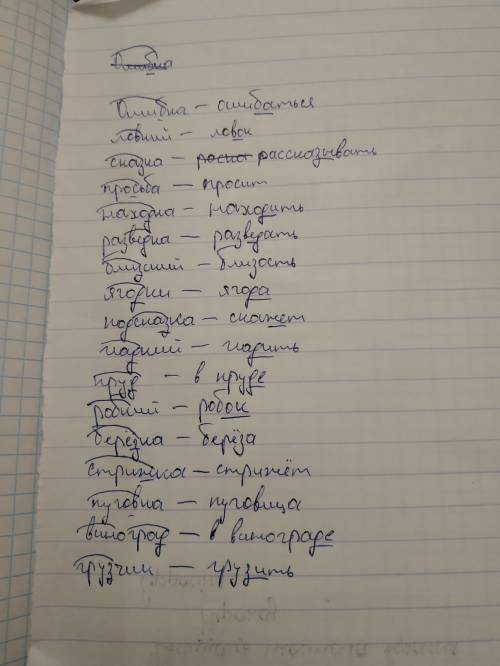 Ошибка
Ошибка – ошибаться
ловкий – ловок
сказка – расска рассказывать
просьба – просит
находка – находить
разведка – разведать
близкий – близость
ягодки – ягода
подсказка – скажет
гладкий – гладить
пруд – в пруде
робкий – робок
берёзка – берёза
стрижка – стрижёт
пуговка – пуговица
виноград – в винограде
грузчик – грузить